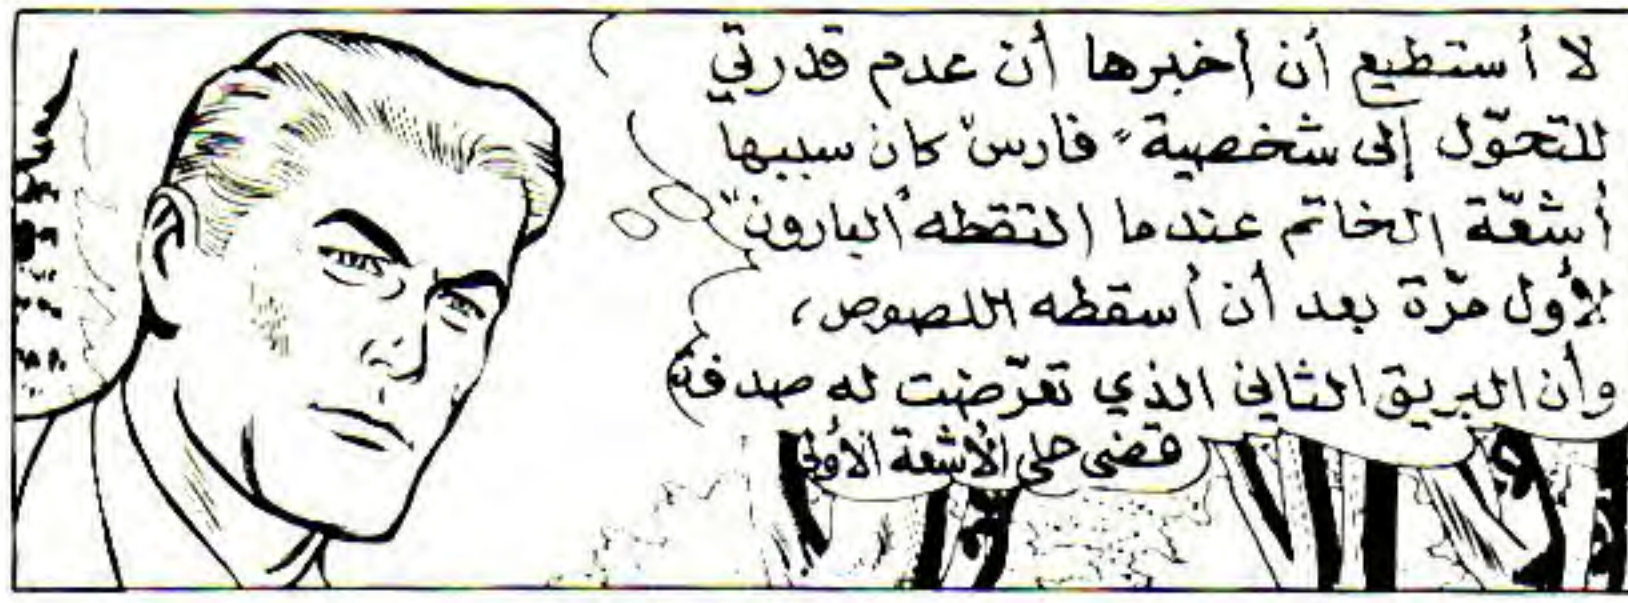 لا أستطيع أن أخبرها أن عدم قدرتي
للتحوّل إلى شخصية "فارس" كان سببها
أشعّة الخاتم عندما التقطه "البارون"
لأول مرّة بعد أن أسقطه اللصوص،
وأن البريق الثاني الذي تعرّضت له صدفة
قضى على الأشعة الأولى